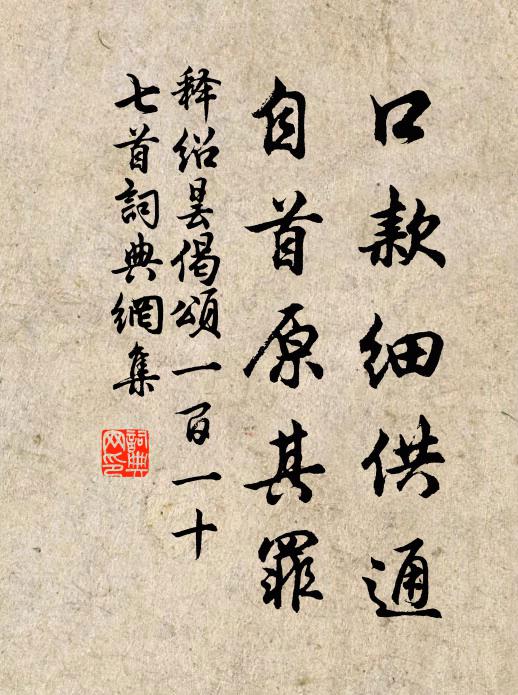 口款细供通
自首原其罪
释绍昙偈颂一百一十
七首詞典網集
詞典
网印